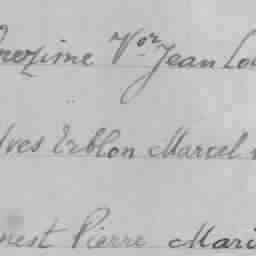 Onezime Vor Jean Lou
Yves Erblon Marcel
nest Pierre Mari